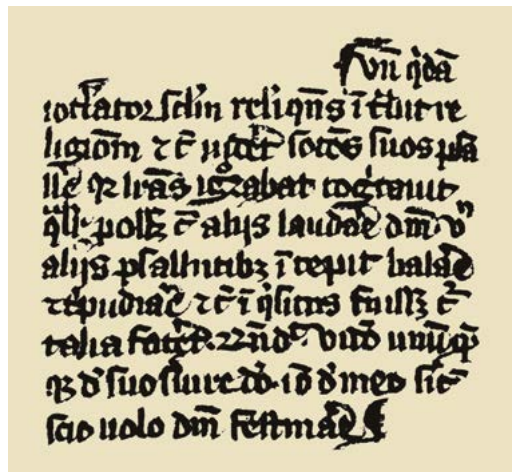 Vñ q̇dā
ioc̄lator sclm̄ relīqns̄ ītᷓuit re
ligiōm ⁊ c̄ uid̄et socēs suos psa
ll̄e qꝫ lrās ignorabat cogitauit
qͣlr̄ possꝫ c̄ alijs laudar̄e dm̄ vn̄
alijs psalln̄tibꝫ īcepit balar̄e
⁊ t̄pudiar̄e ⁊ c̄ īq̇situs fuissꝫ c̄
talia facet̄. Rn̄dͭ. video unūq̄
qꝫ d̓ suo s̓uire do̓. iō d̓ meo sic̄
scio uolo dm̄ festinar̄e